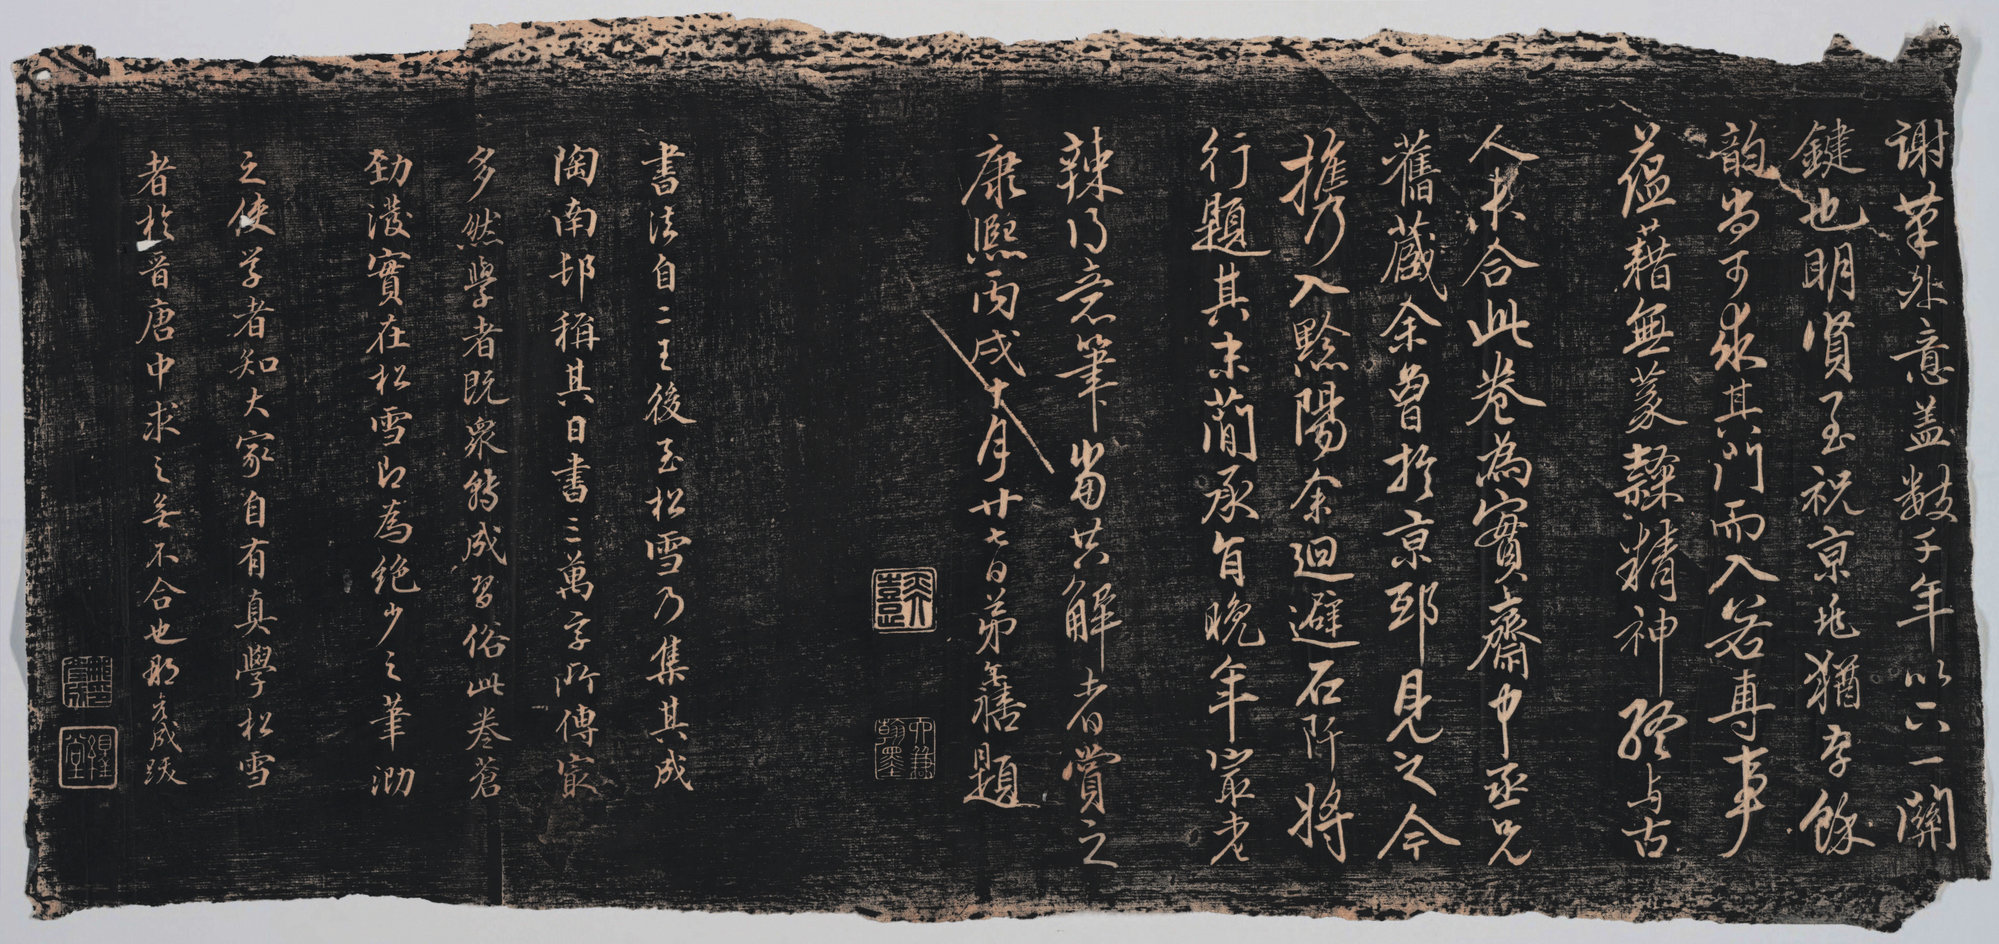 謝筆外意蓋數千年以下一關
鍵也明賢至祝京兆猶存餘
韵尚可求其門而入若專事
蕴藉無篆隸精神終与古
人未合此卷為實齋中丞兄
舊藏余曾於京邸見之今
携乃入黔陽余迴避石阡將
行題其末蕳承旨晚年寂老
辣得意筆當共解者賞之
康熙丙戌十月廿七日弟無䜩題
書法自二王後至松雪乃集其成
陶南邨稱其日書三萬字所傳寂
多然學者既衆轉成習俗此卷蒼
勁潑實在松雪即為絶少之筆泐
之使学者知大家自有真學松雪
者於晉唐中求之無不合也那彥成跋